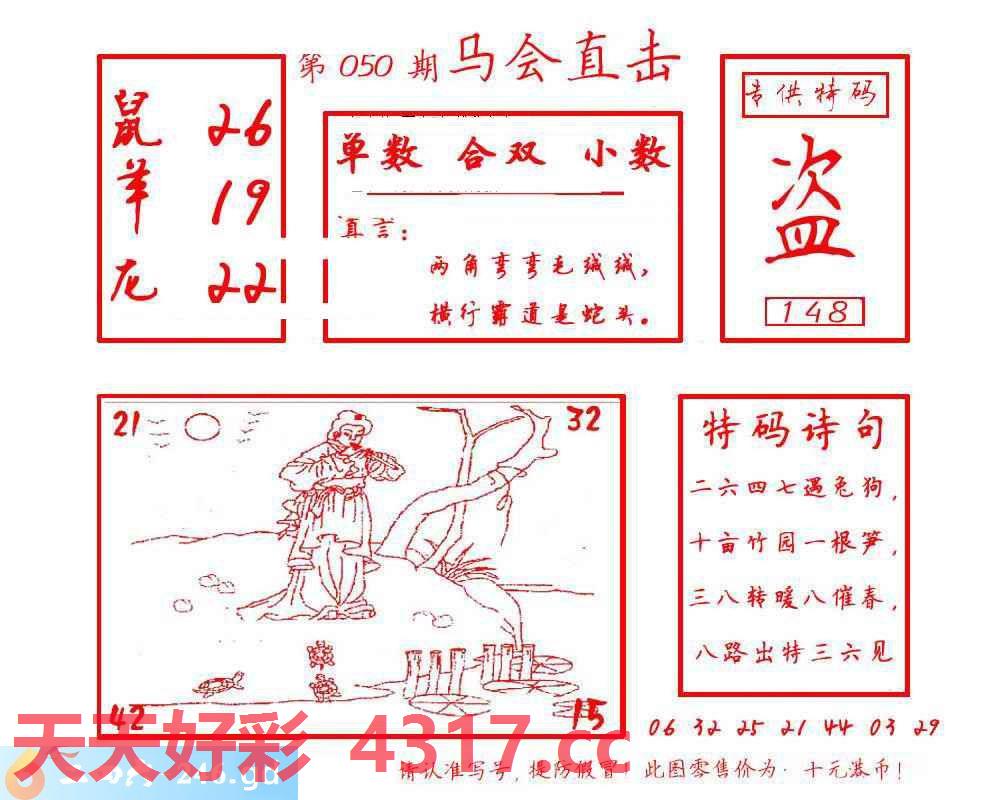 第 050 期 马会直击
鼠 26
羊 19
龙 22
单数 合双 小数
直言：
两角弯弯毛绒绒，
横行霸道是蛇头。
专供特码
盗
148
21
32
42
15
特码诗句
二六四七遇兔狗，
十亩竹园一根笋，
三八转暖八催春，
八路出特三六见
06 32 25 21 44 03 29
天天好彩 4317.cc
246.gd
请认准写号，提防假冒！此图零售价为·十元港币！